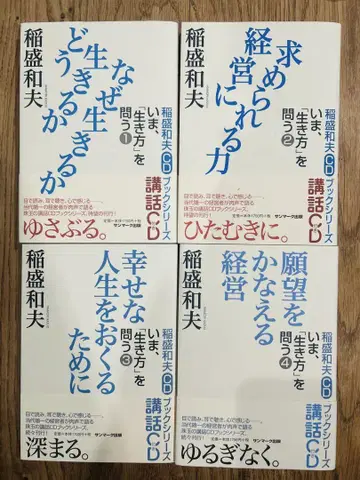 なぜ生きるか
どう生きるか
稲盛和夫
稲盛和夫CDブックシリーズ
いま、「生き方」を問う①
目で読み、耳で聴き、心で感じる――。
当代随一の経営者が肉声で語る
珠玉の講話CDブックシリーズ、
待望の刊行!
講話CD
ゆさぶる。
サンマーク出版
求められる力
経営に
稲盛和夫
稲盛和夫CDブックシリーズ
いま、「生き方」を問う②
目で読み、耳で聴き、心で感じる――。
当代随一の経営者が肉声で語る
珠玉の講話CDブックシリーズ、
待望の刊行!
講話CD
ひたむきに。
サンマーク出版
幸せな
人生をおくる
ために
稲盛和夫
稲盛和夫CDブックシリーズ
いま、「生き方」を問う③
目で読み、耳で聴き、心で感じる――。
当代随一の経営者が肉声で語る
珠玉の講話CDブックシリーズ、
続々刊行!
講話CD
深まる。
サンマーク出版
願望を
かなえる
経営
稲盛和夫
稲盛和夫CDブックシリーズ
いま、「生き方」を問う④
目で読み、耳で聴き、心で感じる――。
当代随一の経営者が肉声で語る
珠玉の講話CDブックシリーズ、
続々刊行!
講話CD
ゆるぎなく。
サンマーク出版